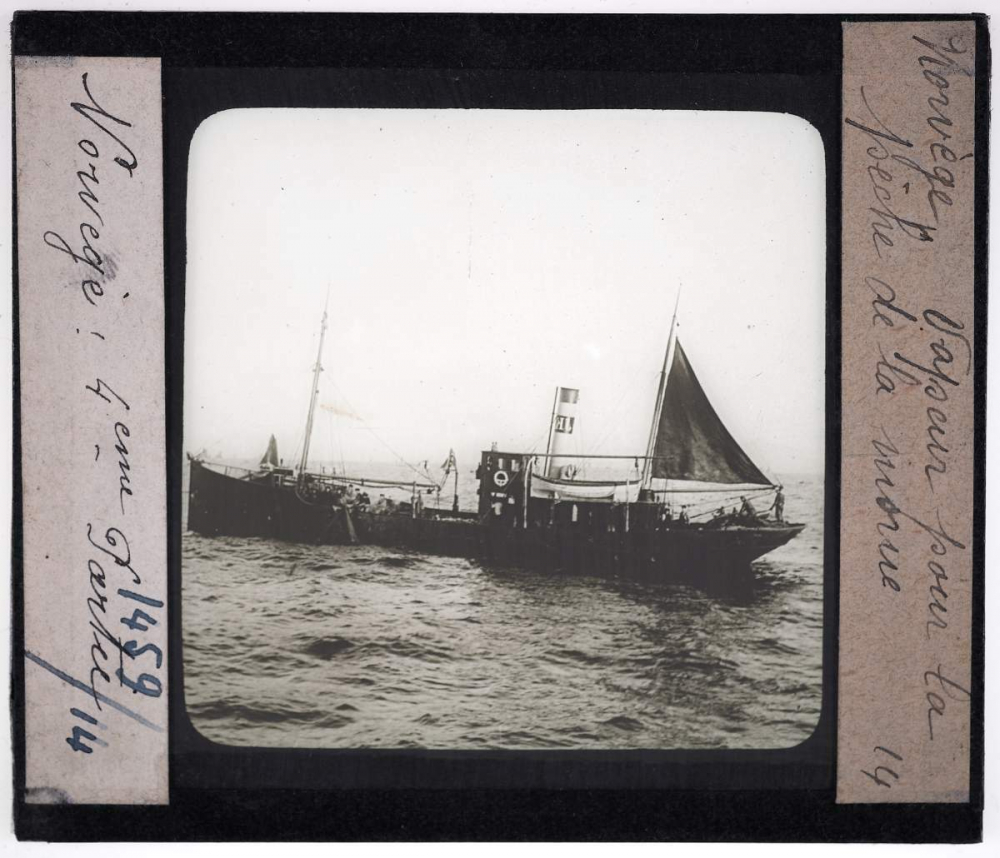 Norvège : 4eme Partie
1459/14
Norvège, Vapeur pour la
pêche de la morue 14